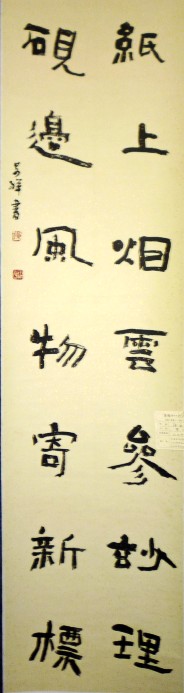 紙上烟雲參妙理
硯邊風物寄新標
書